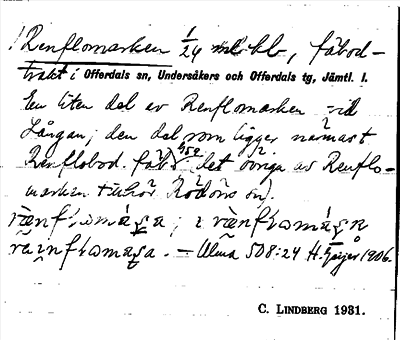 Renflomarken 1/24 mbl, fäbod-
trakt i Offerdals sn, Undersåkers och Offerdals tg, Jämtl. l.
En liten del av Renflomarken vid
Långan; den del som ligger närmast
Renflobod. fäb, det övriga av Renflo-
marken tillhör Rödöns sn).
Ulma 508:24 H. Geijer 1906.
C. LINDBERG 1931.